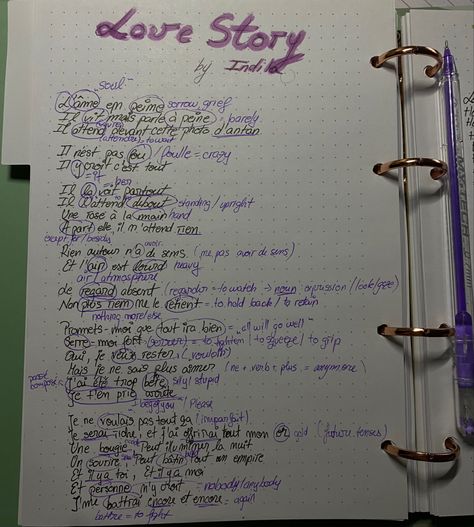 Love Story
by Indila
"soul"
L'âme em peine sorrow, grief
Il vit mais parle à peine = barely
Il attend devant cette photo d'antan
(attendre) to wait
Il n'est pas fou / foulle = crazy
Il y croit c'est tout
= it
her
Il la voit partout
Il l'attend debout standing / upright
Une rose à la main hand
A part elle, il m'attend rien
except for / besides
avoir
Rien autour n'a de sens (me pas avoir de sens)
Et l'air est lourd heavy
air / atmosphere
Le regard absent (regarder = to watch → noun expression / look / gaze)
Non plus rien me le retient = to hold back / to retain
nothing more / else
Promets-moi que tout ira bien = "all will go well"
Serre-moi fort (serrer) = to tighten / to squeeze / to grip
Oui, je veux rester (vouloir)
Mais je ne sais plus aimer (ne + verb + plus = anymore)
passé composé
J'ai été trop bête silly / stupid
Je t'en prie arrête
I beg of you / Please
Je ne voulais pas tout ça (imparfait)
Je serai riche, et j'ai offrirai tout mon or gold (future tenses)
Une bougie Peut illuminer la nuit
Un sourire Peut bâtir Tout un empire
Et il y a toi, Et il y a moi
Et personne n'y croit = nobody / anybody
J'me battrai encore et encore = again
battre = to fight